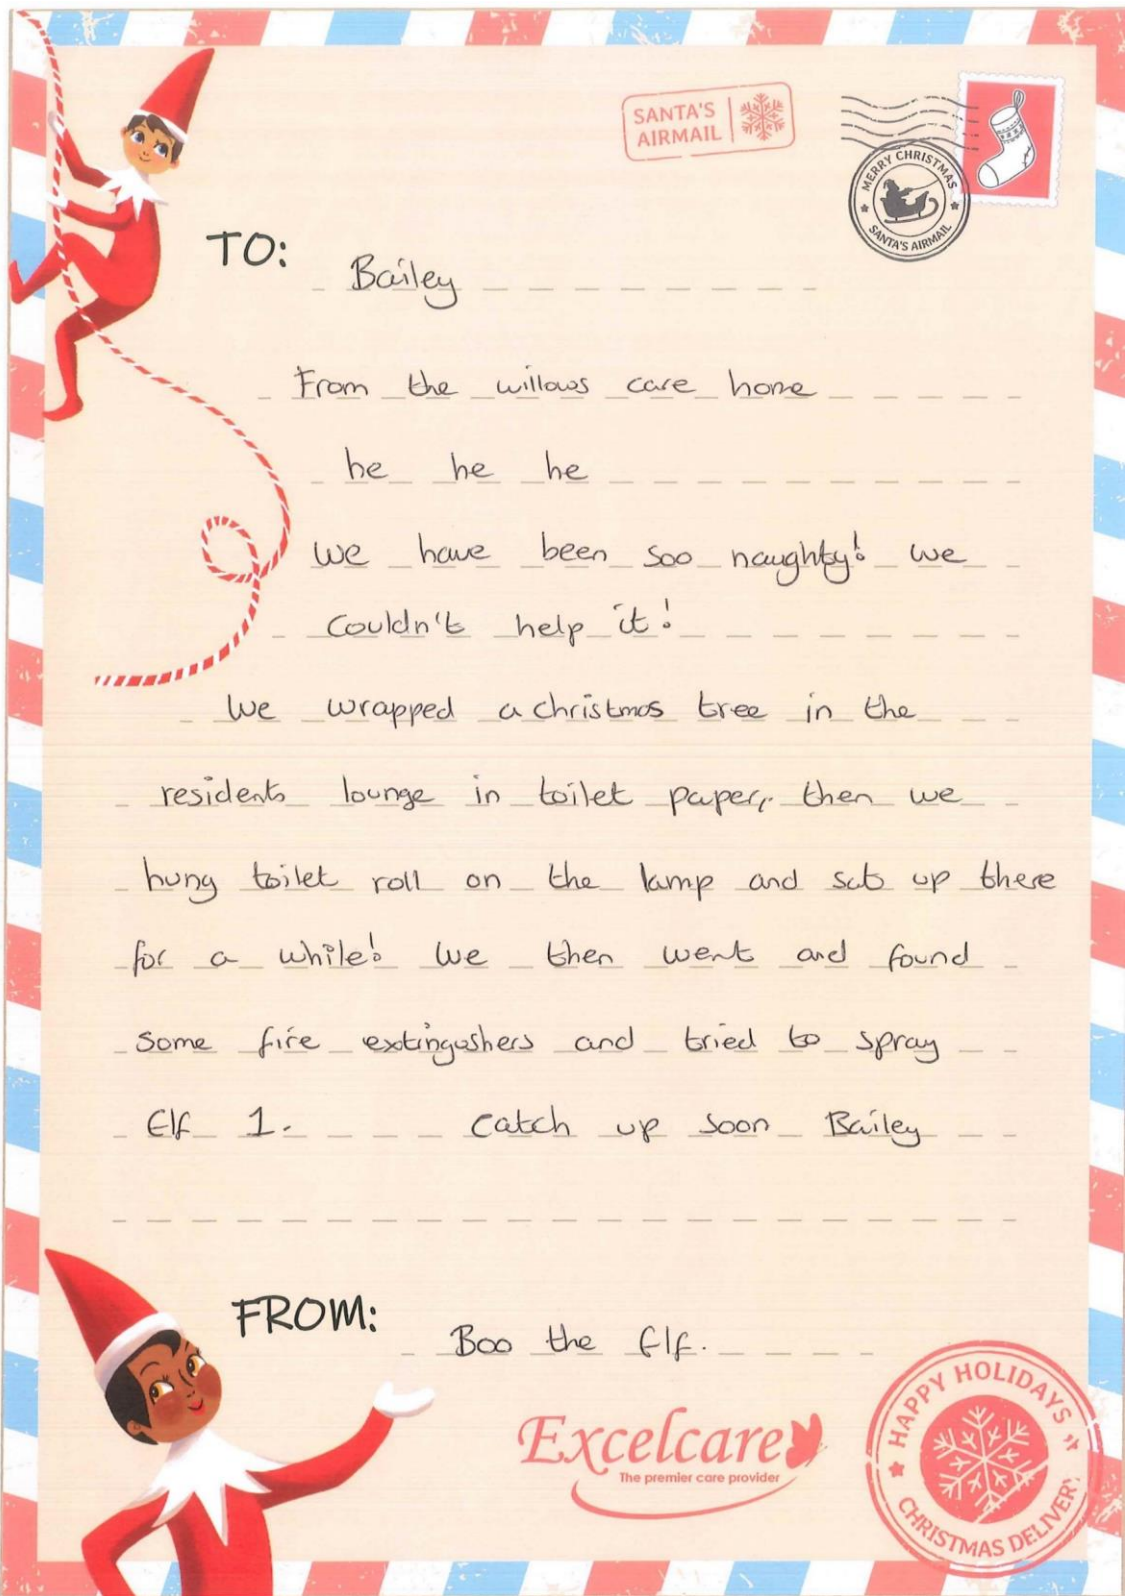 SANTA'S
AIRMAIL
MERRY CHRISTMAS
SANTA'S AIRMAIL
TO:
Bailey
From the willows care home
he he he
we have been soo naughty! we
couldn't help it!
We wrapped a christmas tree in the
residents lounge in toilet paper, then we
hung toilet roll on the lamp and sat up there
for a while! We then went and found
some fire extingushers and tried to spray
Elf 1. Catch up soon Bailey
FROM:
Boo the Elf.
Excelcare
The premier care provider
HAPPY HOLIDAYS
CHRISTMAS DELIVERY